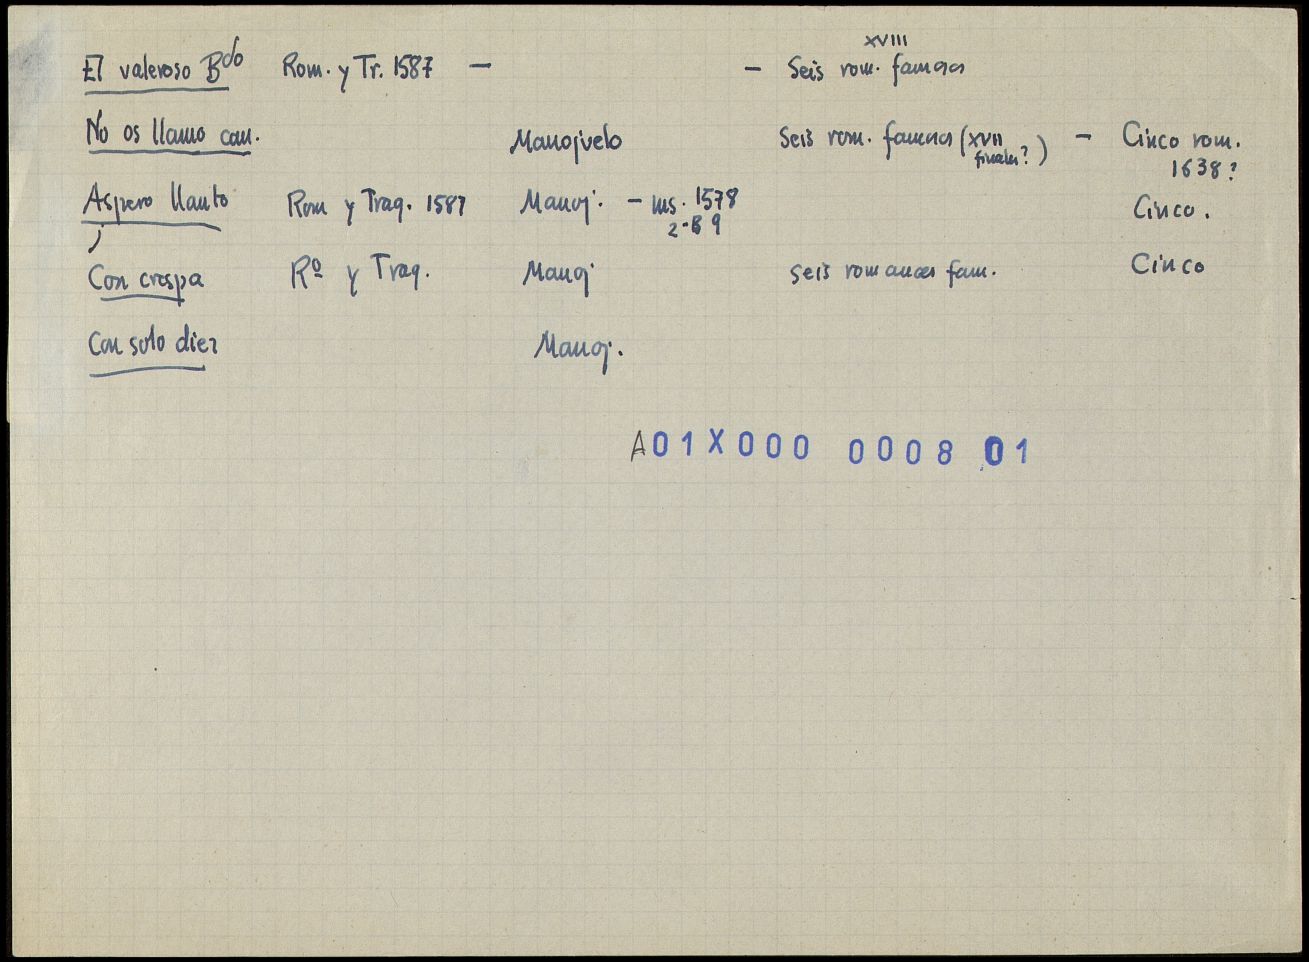 XVIII
El valeroso Bdo Rom. y Tr. 1587 — — Seis rom. famosos
No os llamo can. Manojuelo Seis rom. famosos (XVII finales?) — Cinco rom. 1638?
Aspero llanto Rom y Trag. 1587 Manoj. — ms. 1578 Cinco.
2-B 9
Con crespa Rº y Trag. Manoj Seis romances fam. Cinco
Con solo diez Manoj.
A01X000 0008 01